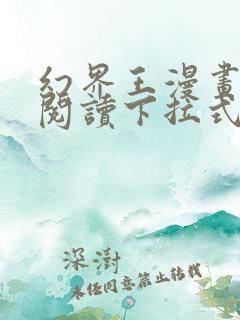 幻界王漫畫
閱讀下拉式
深澍
未經同意禁止轉載